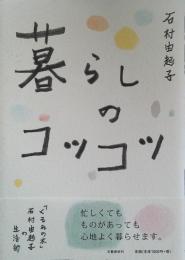 石村由起子
暮らし
の
コツコツ
「くるみの木」
石村由起子
の
生活術
忙しくても
ものがあっても
心地よく暮らせます。
文藝春秋刊